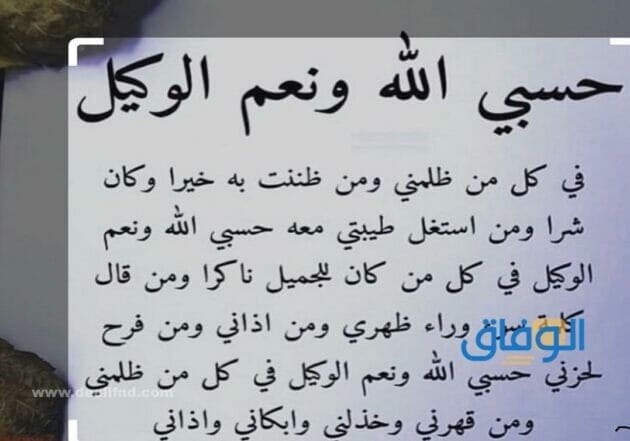 حسبي الله ونعم الوكيل
في كل من ظلمني ومن ظننت به خيرا وكان
شرا ومن استغل طيبتي معه حسبي الله ونعم
الوكيل في كل من كان للجميل ناكرا ومن قال
كلمة سوء وراء ظهري ومن اذاني ومن فرح
الوفاق
لحزني حسبي الله ونعم الوكيل في كل من ظلمني
ومن قهرني وخذلني وابكاني واذاني